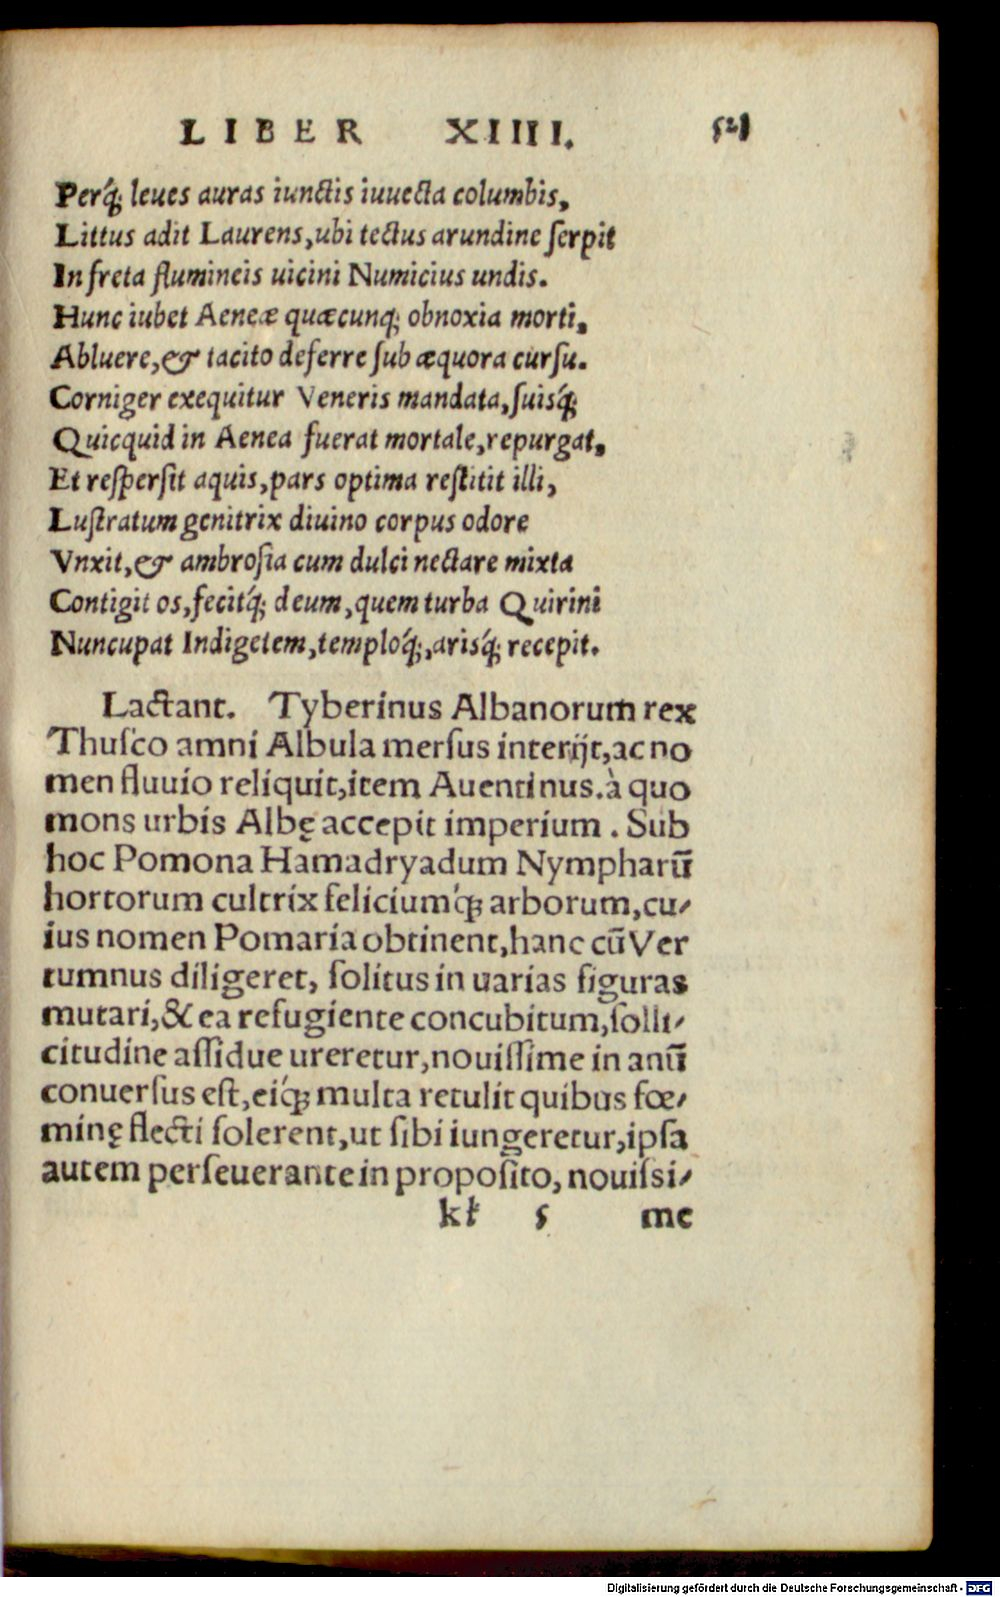 LIBER XIIII. 521
Perq́; leues auras iunctis iuuecta columbis,
Littus adit Laurens, ubi tectus arundine ſerpit
In freta flumineis uicini Numicius undis.
Hunc iubet Aeneæ quæcunq; obnoxia morti,
Abluere, & tacito deferre ſub æquora curſu.
Corniger exequitur Veneris mandata, ſuisq́;
Quicquid in Aenea fuerat mortale, repurgat,
Et reſperſit aquis, pars optima reſtitit illi,
Luſtratum genitrix diuino corpus odore
Vnxit, & ambroſia cum dulci nectare mixta
Contigit os, fecitq́; deum, quem turba Quirini
Nuncupat Indigetem, temploq́;, arisq́; recepit.
Lactant. Tyberinus Albanorum rex
Thuſco amni Albula merſus interijt, ac no
men fluuio reliquit, item Auentinus. à quo
mons urbis Albę accepit imperium. Sub
hoc Pomona Hamadryadum Nympharũ
hortorum cultrix feliciumq́; arborum, cu-
ius nomen Pomaria obtinent, hanc cũ Ver
tumnus diligeret, ſolitus in uarias figuras
mutari, & ea refugiente concubitum, ſolli-
citudine aſſidue ureretur, nouiſſime in anũ
conuerſus eſt, eiq́; multa retulit quibus fœ-
minę flecti ſolerent, ut ſibi iungeretur, ipſa
autem perſeuerante in propoſito, nouiſsi-
kk 5 me
Digitalisierung gefördert durch die Deutsche Forschungsgemeinschaft - DFG